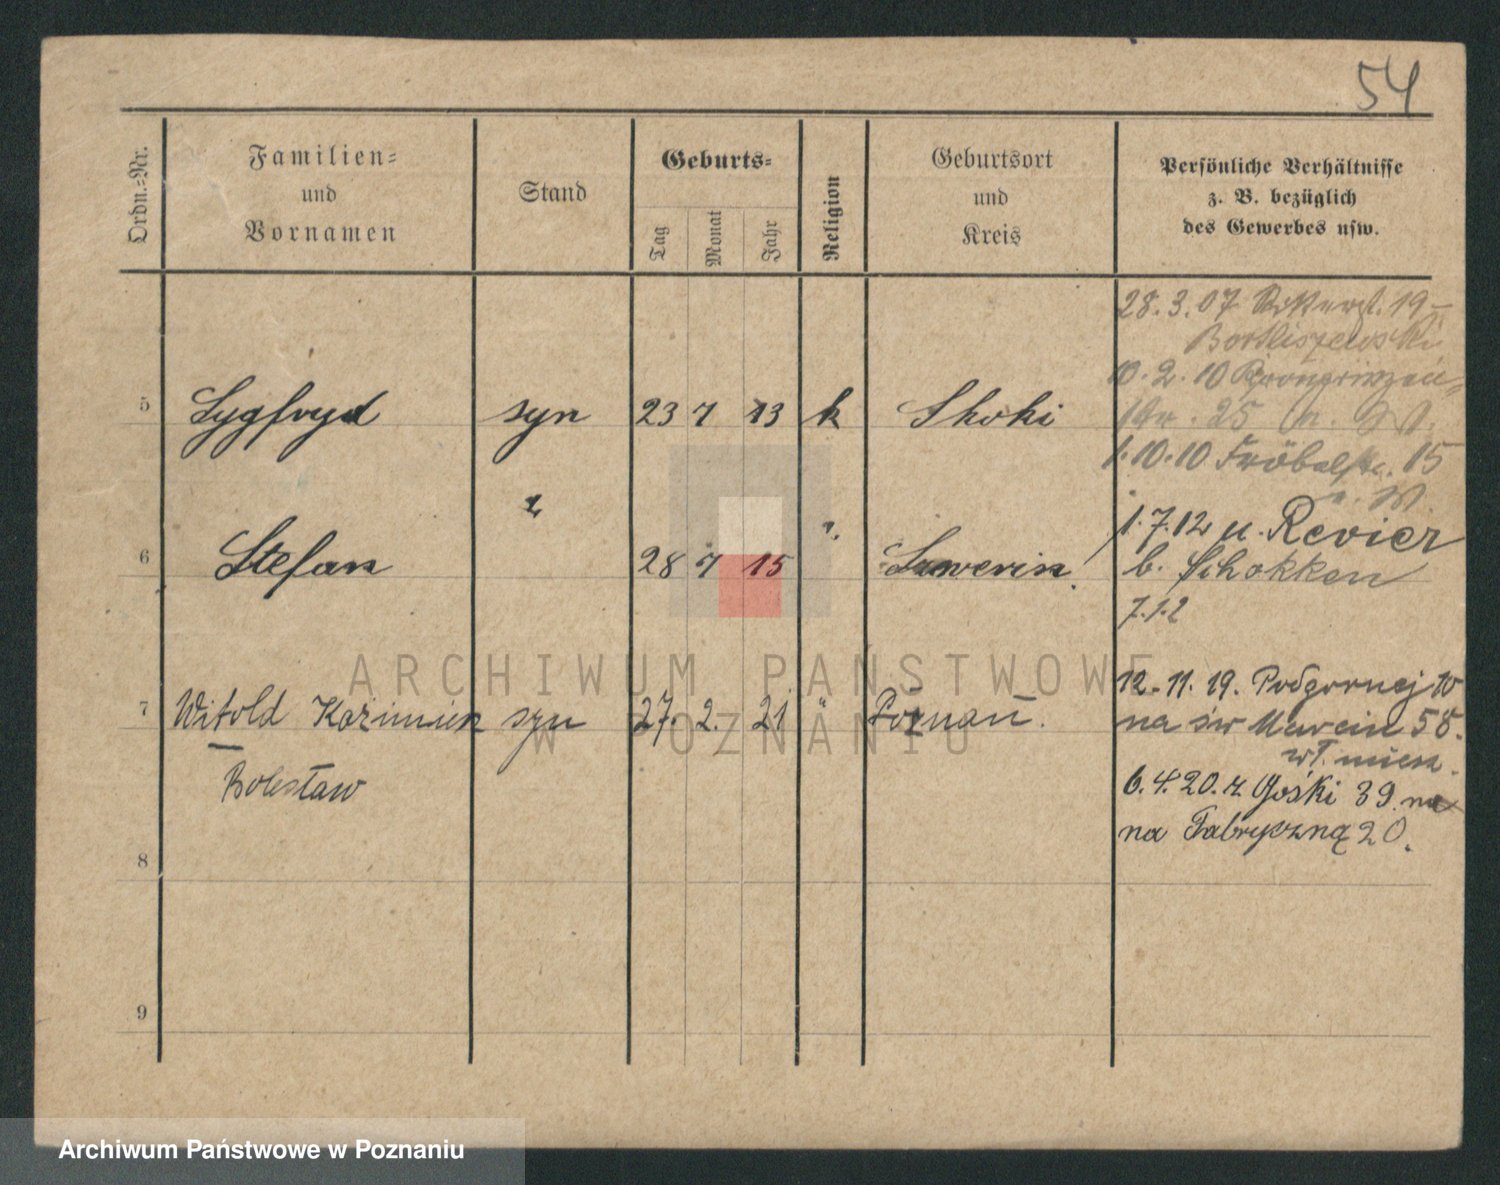 54
Ordn.-Nr.
Familien-
und
Vornamen
Stand
Geburts-
Tag
Monat
Jahr
Religion
Geburtsort
und
Kreis
Persönliche Verhältnisse
z. B. bezüglich
des Gewerbes usw.
28.3.07 19-
10.2.10
25
1.10.10 Fröbelstr. 15
5 Sygfryd syn 23 7 13 k Skoki
1.7.12 u. Revier
6 Stefan " 28 7 15 " Szwerin
b. Schokken
7.1.2
12.11.19. Podgornej 10
7 Witold Kazimierz syn 27. 2. 21 " Poznań.
na św Marcin 58.
wł. miesz.
Bolesław
6.4.20. z Góski 39 na
na Fabryczną 20.
8
9
ARCHIWUM PAŃSTWOWE
W POZNANIU
Archiwum Państwowe w Poznaniu